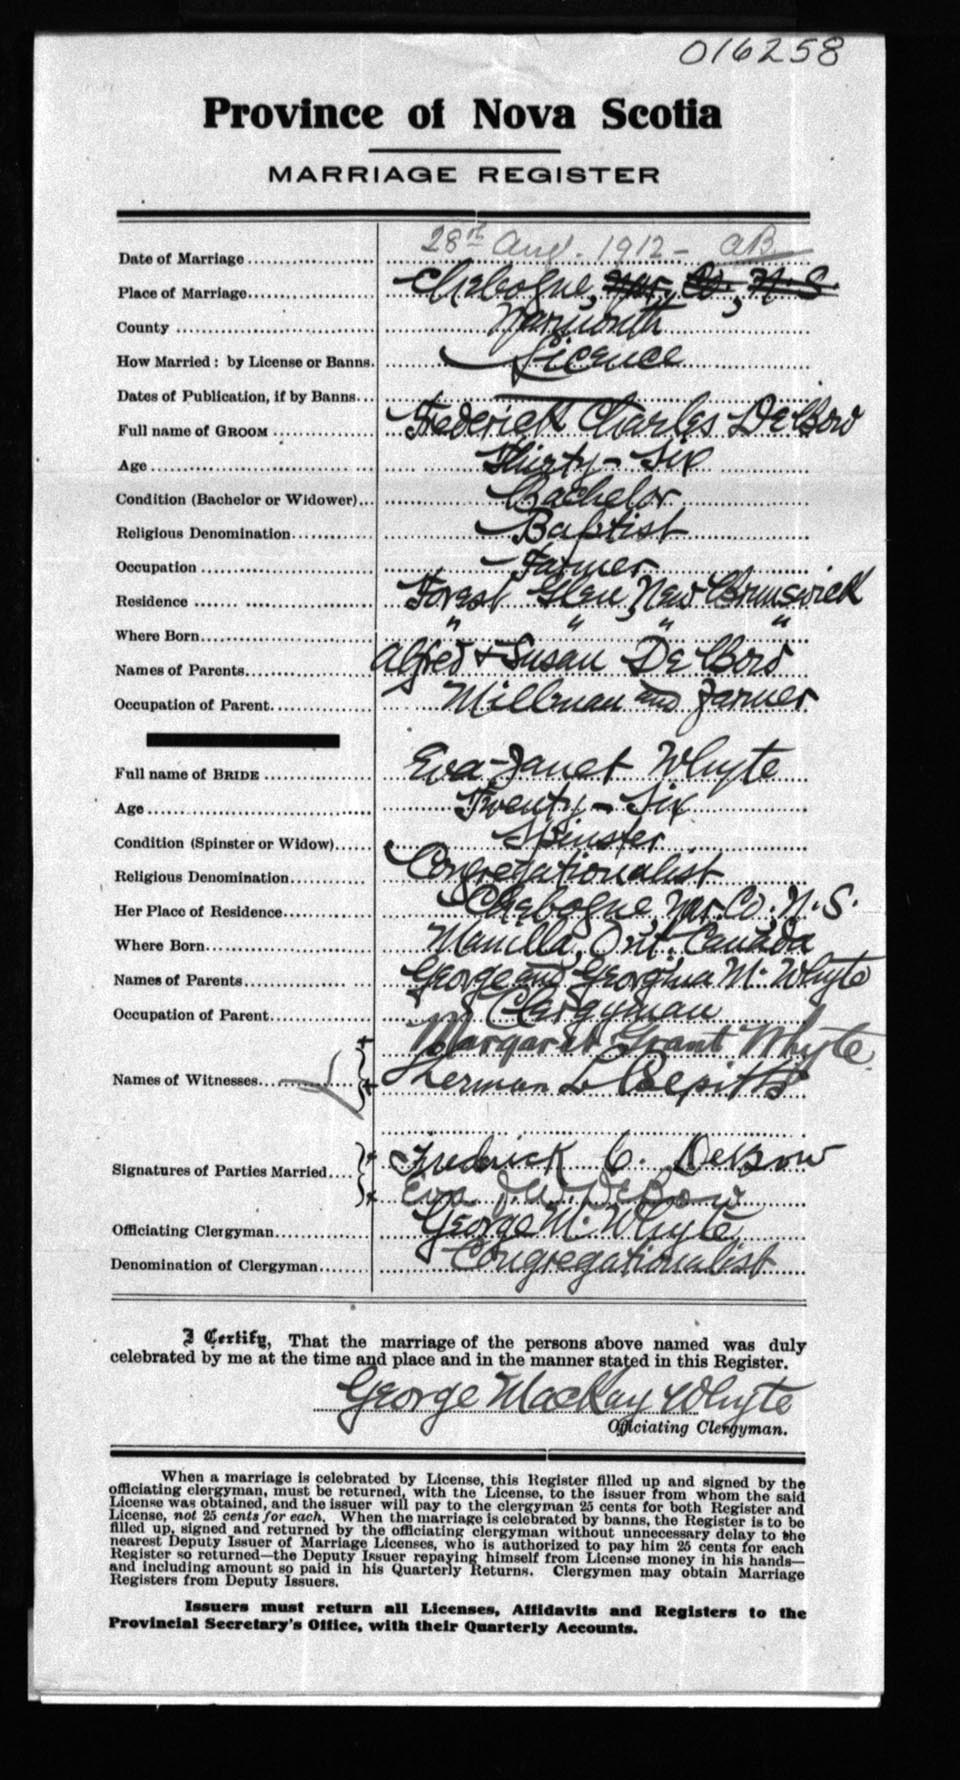 016258
Province of Nova Scotia
MARRIAGE REGISTER
Date of Marriage 28th Aug. 1912 - AB
Place of Marriage Chebogne, Yar. Co., N.S.
County Yarmouth
How Married: by License or Banns. Licence
Dates of Publication, if by Banns
Full name of GROOM Frederick Charles DeBow
Age Thirty-Six
Condition (Bachelor or Widower) Bachelor
Religious Denomination Baptist
Occupation Farmer
Residence Forest Glen, New Brunswick
Where Born " " " "
Names of Parents Alfred + Susan DeBow
Occupation of Parent Millman and Farmer
Full name of BRIDE Eva Janet Whyte
Age Twenty-Six
Condition (Spinster or Widow) Spinster
Religious Denomination Congregationalist
Her Place of Residence Chebogne, Yar. Co. N.S.
Where Born Manilla, Ont. Canada
Names of Parents George and Georgina M. Whyte
Occupation of Parent Clergyman
Margaret Grant Whyte
Names of Witnesses Sherman L
Signatures of Parties Married Fredrick C. DeBow
Eva J. W. DeBow
Officiating Clergyman George M. Whyte
Denomination of Clergyman Congregationalist
I Certify, That the marriage of the persons above named was duly
celebrated by me at the time and place and in the manner stated in this Register.
George MacKay Whyte
Officiating Clergyman.
When a marriage is celebrated by License, this Register filled up and signed by the
officiating clergyman, must be returned, with the License, to the issuer from whom the said
License was obtained, and the issuer will pay to the clergyman 25 cents for both Register and
License, not 25 cents for each. When the marriage is celebrated by banns, the Register is to be
filled up, signed and returned by the officiating clergyman without unnecessary delay to the
nearest Deputy Issuer of Marriage Licenses, who is authorized to pay him 25 cents for each
Register so returned—the Deputy Issuer repaying himself from License money in his hands—
and including amount so paid in his Quarterly Returns. Clergymen may obtain Marriage
Registers from Deputy Issuers.
Issuers must return all Licenses, Affidavits and Registers to the
Provincial Secretary's Office, with their Quarterly Accounts.